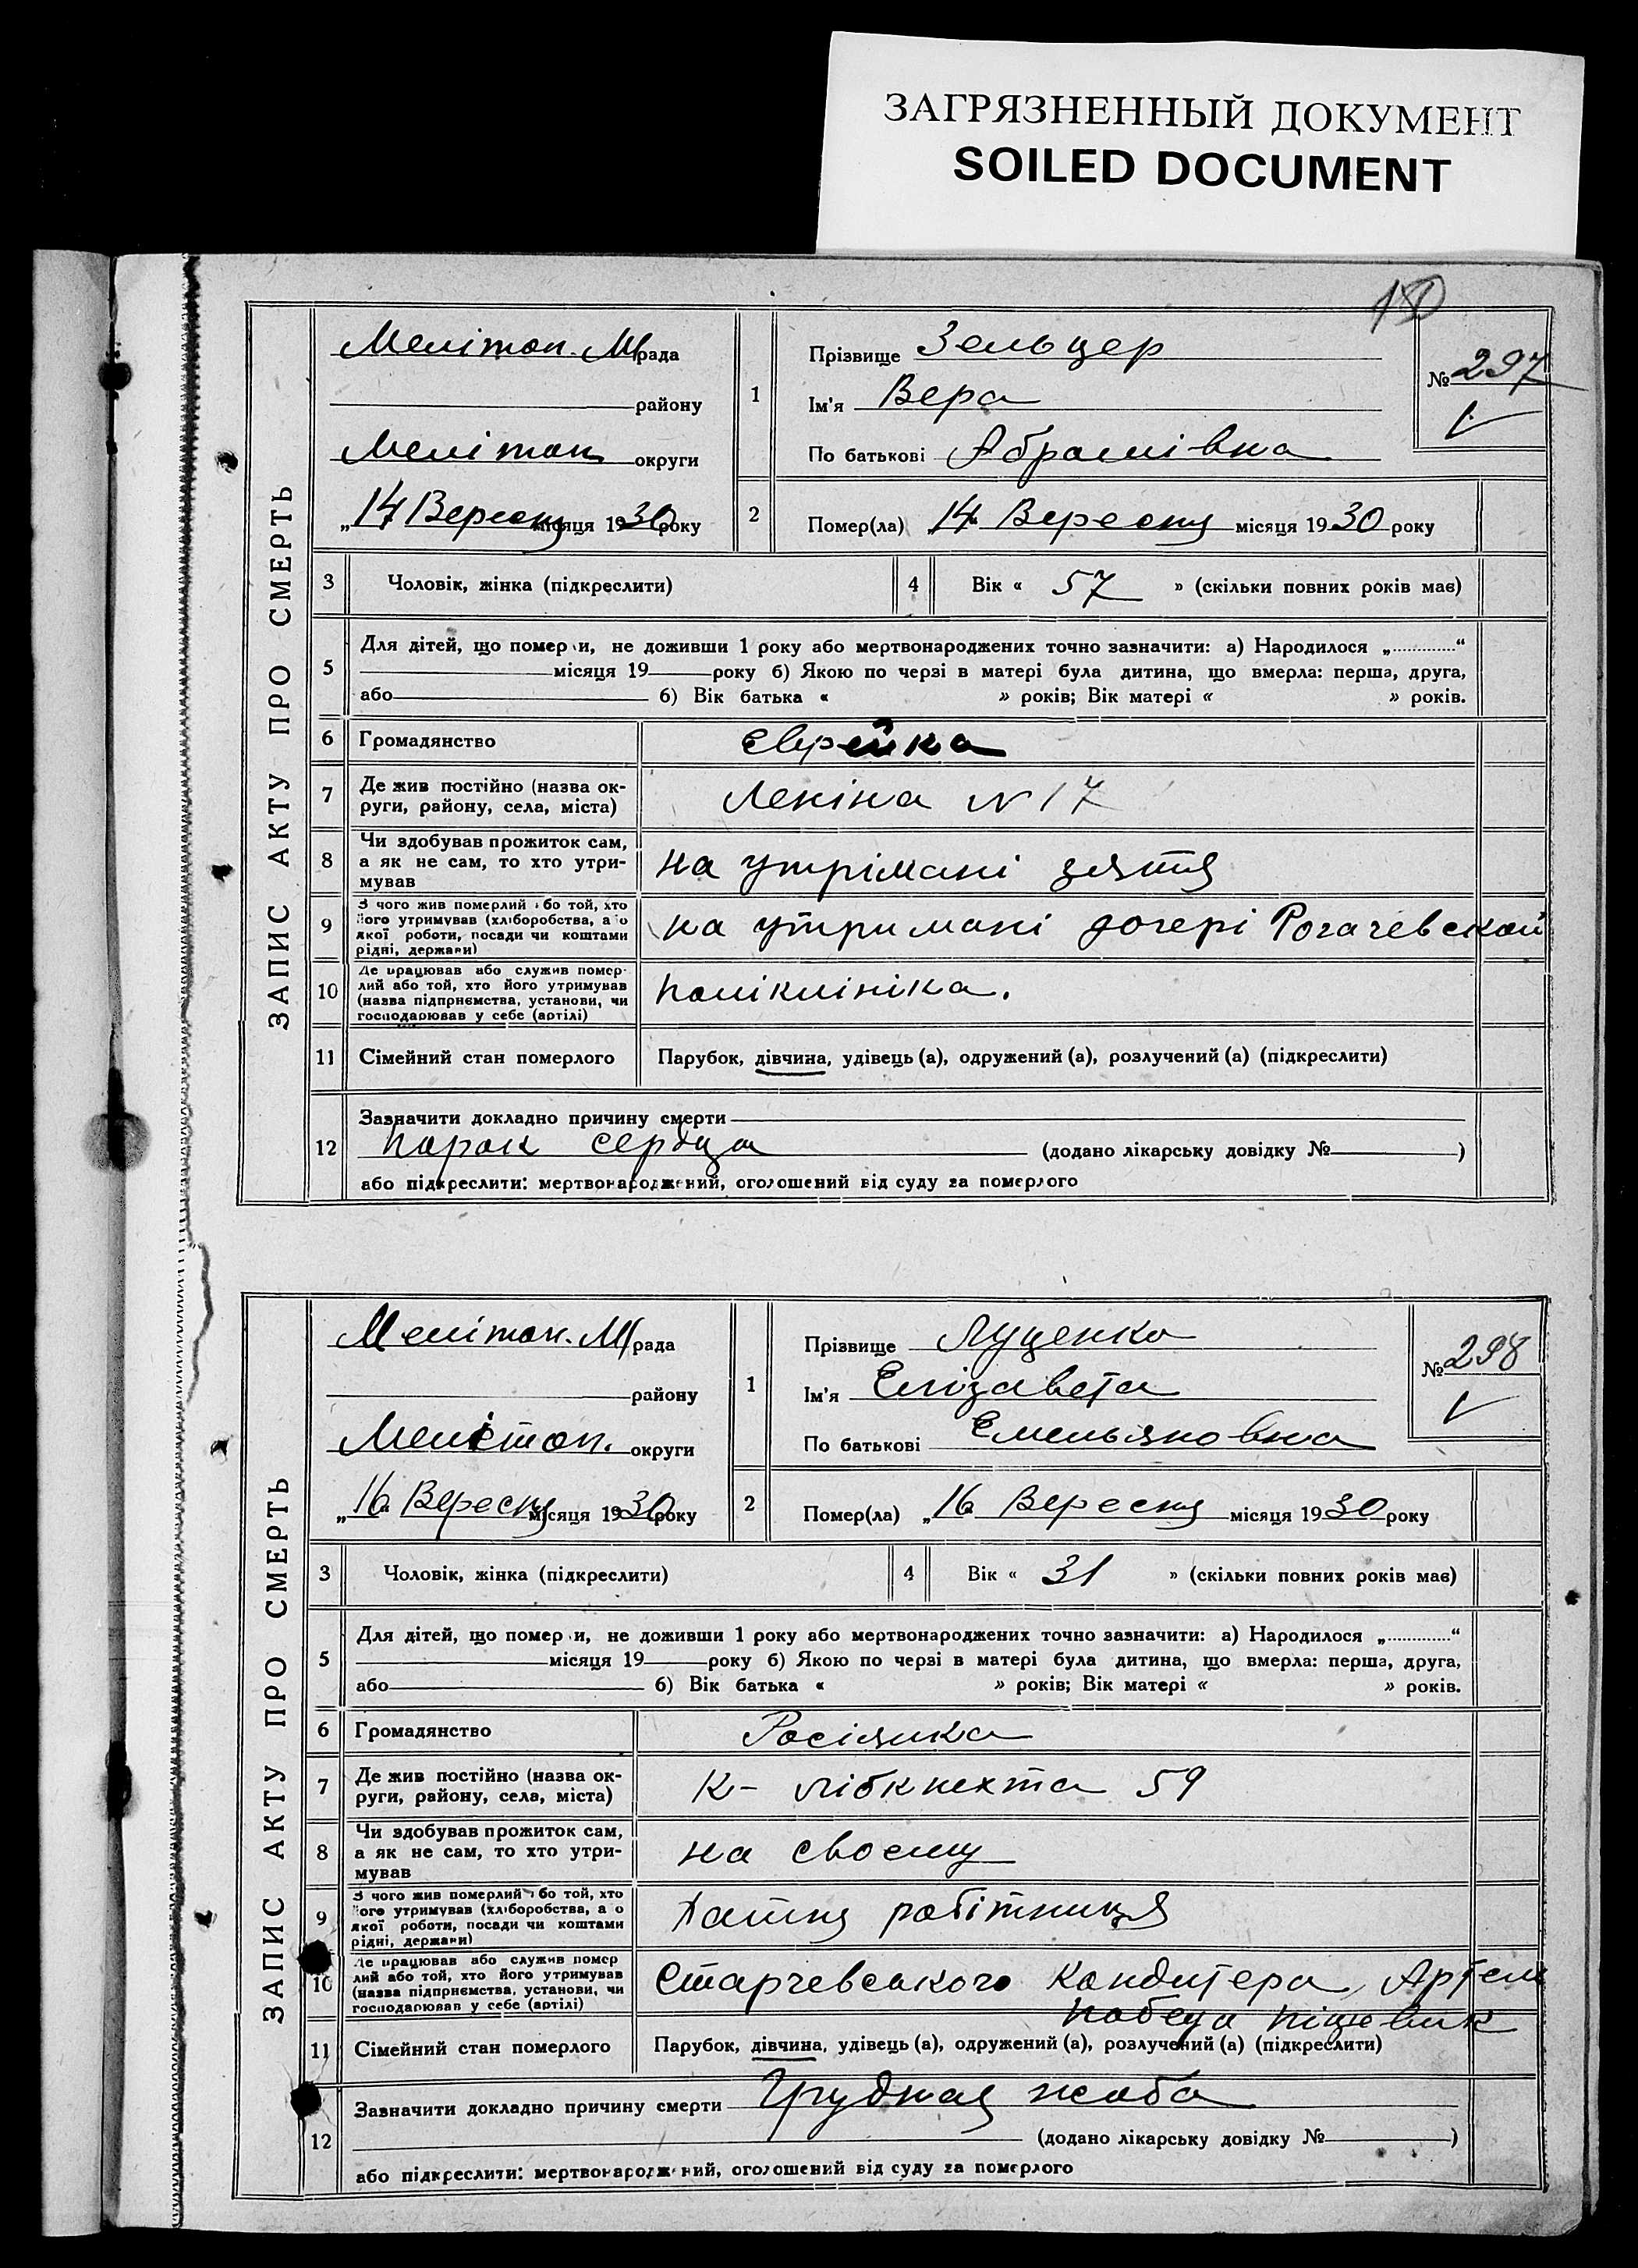 ЗАГРЯЗНЕННЫЙ ДОКУМЕНТ
SOILED DOCUMENT
ЗАПИС АКТУ ПРО СМЕРТЬ
Мелітоп. М/рада
району
Мелітоп округи
„14 Вересня місяця 1930 року
1
Прізвище Зельцер
Ім'я Вера
По батькові Абрамівна
№ 297
2
Помер(ла) „14 Вересня місяця 1930 року
3 Чоловік, жінка (підкреслити)
4 Вік « 57 » (скільки повних років має)
5 Для дітей, що помер и, не доживши 1 року або мертвонароджених точно зазначити: а) Народилося „............“
місяця 19 року б) Якою по черзі в матері була дитина, що вмерла: перша, друга,
або б) Вік батька « » років; Вік матері « » років.
6 Громадянство Єврейка
7 Де жив постійно (назва ок-
руги, району, села, міста)
Леніна № 17
8 Чи здобував прожиток сам,
а як не сам, то хто утри-
мував
на утрімані зятя
9 З чого жив померлий або той, хто
його утримував (хліборобства, або
якої роботи, посади чи коштами
рідні, держави)
на утримані дочері Рогачевской
10 Де працював або служив помер-
лий або той, хто його утримував
(назва підприємства, установи, чи
господарював у себе (артілі)
поліклініка.
11 Сімейний стан померлого Парубок, дівчина, удівець (а), одружений (а), розлучений (а) (підкреслити)
12 Зазначити докладно причину смерти
порок сердца (додано лікарську довідку № )
або підкреслити: мертвонароджений, оголошений від суду за померлого
ЗАПИС АКТУ ПРО СМЕРТЬ
Мелітоп. М/рада
району
Мелітоп. округи
„16 Вересня місяця 1930 року
1
Прізвище Луценко
Ім'я Елізавета
По батькові Емельяновна
№ 298
2
Помер(ла) „16 Вересня місяця 1930 року
3 Чоловік, жінка (підкреслити)
4 Вік « 31 » (скільки повних років має)
5 Для дітей, що помер и, не доживши 1 року або мертвонароджених точно зазначити: а) Народилося „............“
місяця 19 року б) Якою по черзі в матері була дитина, що вмерла: перша, друга,
або б) Вік батька « » років; Вік матері « » років.
6 Громадянство Росіянка
7 Де жив постійно (назва ок-
руги, району, села, міста)
К- лібкнехта 59
8 Чи здобував прожиток сам,
а як не сам, то хто утри-
мував
на своєму
9 З чого жив померлий або той, хто
його утримував (хліборобства, або
якої роботи, посади чи коштами
рідні, держави)
робітниця
10 Де працював або служив помер
лий або той, хто його утримував
(назва підприємства, установи, чи
господарював у себе (артілі)
Старчевського Кондитера, Артель
победа піщевик
11 Сімейний стан померлого Парубок, дівчина, удівець (а), одружений (а), розлучений (а) (підкреслити)
12 Зазначити докладно причину смерти Грудная жаба
(додано лікарську довідку № )
або підкреслити: мертвонароджений, оголошений від суду за померлого